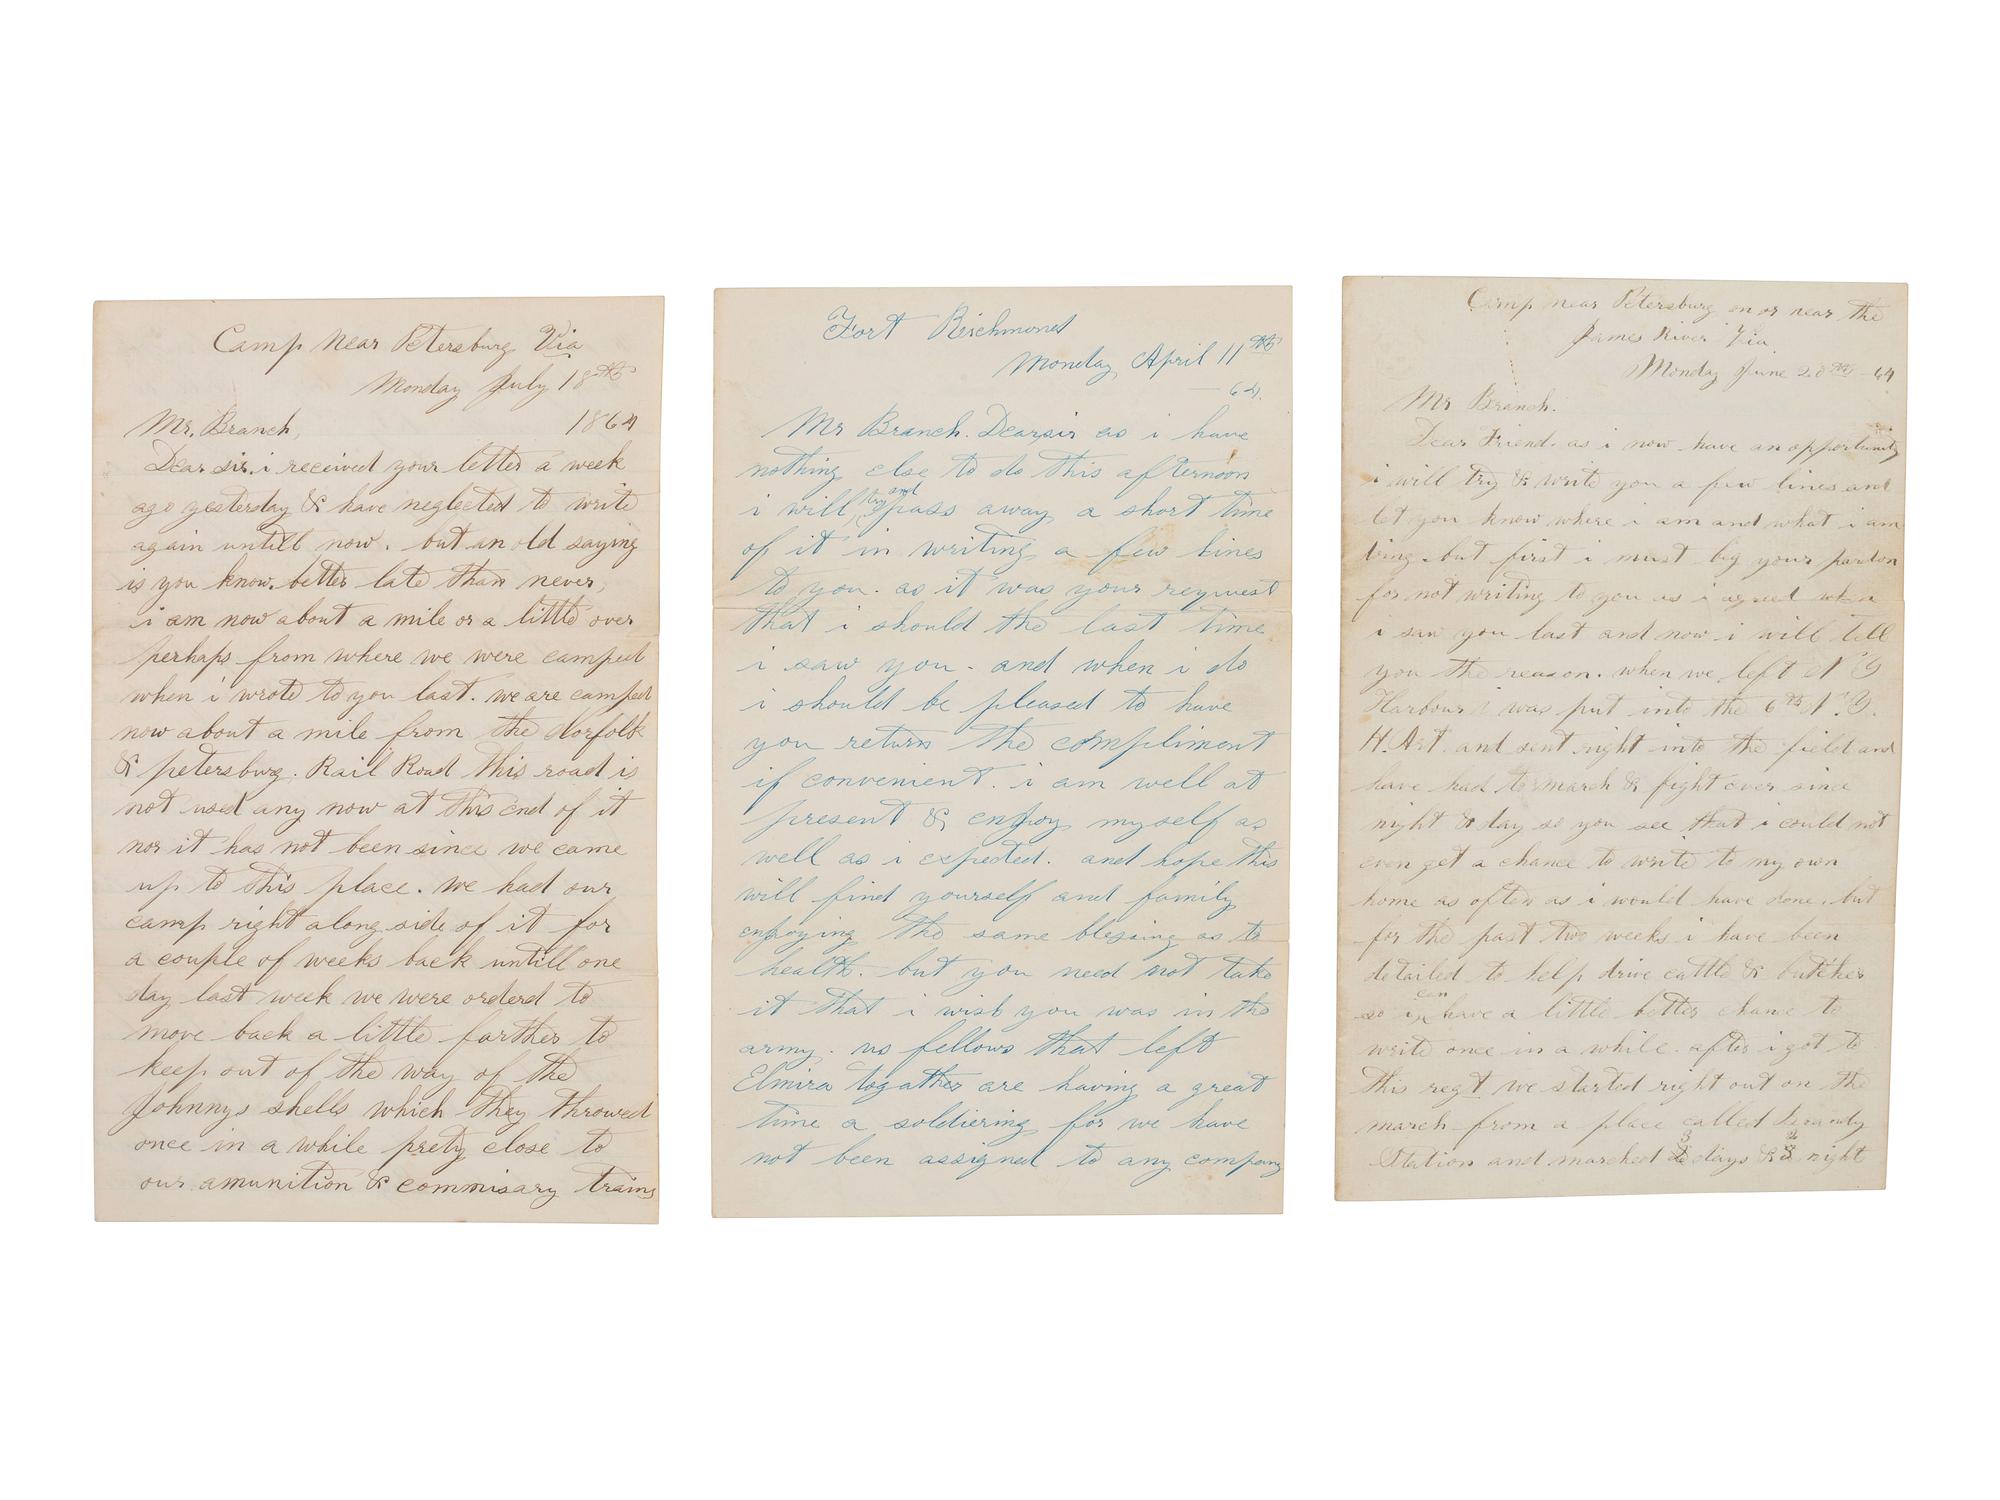 Camp Near Petersburg Via
Monday July 18th
1864
Mr. Branch,
Dear sir. i received your letter a week
ago yesterday & have neglected to write
again untill now. but an old saying
is you know. better late than never,
i am now about a mile or a little over
perhaps from where we were camped
when i wrote to you last. we are camped
now about a mile from the Norfolk
& petersburg. Rail Road this road is
not used any now at this end of it
nor it has not been since we came
up to this place. we had our
camp right along side of it for
a couple of weeks back untill one
day last week we were orderd to
move back a little farther to
keep out of the way of the
Johnnys shells which they throwed
once in a while prety close to
our amunition & commisary trains
Fort Reichmond
Monday, April 11th
64.
Mr Branch. Dear sir as i have
nothing else to do this afternoon
i will try and pass away a short time
of it in writing a few lines
to you. as it was your reqwest
that i should the last time
i saw you. and when i do
i should be pleased to have
you return the compliment
if convenient. i am well at
present & enjoy myself as
well as i expected. and hope this
will find yourself and family
enjoying the same blessing as to
health. but you need not take
it that i wish you was in the
army. us fellows that left
Elmira togather are having a great
time a soldiering for we have
not been assigned to any company
Camp near Petersburg on or near the
James River Via
Monday June 20th -64
Mr Branch.
Dear Friend. as i now have an opportunity
i will try & write you a few lines and
let you know where i am and what i am
doing. but first i must beg your pardon
for not writing to you as i agreed when
i saw you last and now i will tell
you the reason. when we left N Y
Harbour i was put into the 6th N.Y.
H. Art. and sent right into the field and
have had to march & fight ever since
night & day so you see that i could not
even get a chance to write to my own
home as often as i would have done. but
for the past two weeks i have been
detailed to help drive cattle & butcher
so i can have a little better chance to
write once in a while. after i got to
this regt we started right out on the
march from a place called
Station and marched 3 days & night